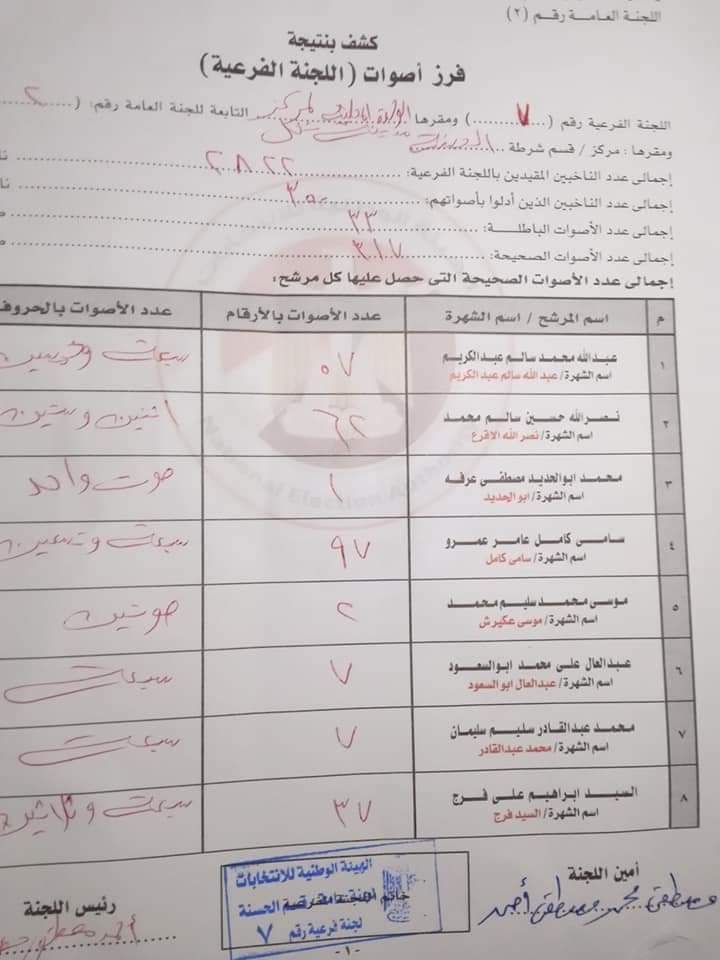 اللجنة العامة رقم (٢)
كشف بنتيجة
فرز أصوات (اللجنة الفرعية)
اللجنة الفرعية رقم (...٧...) ومقرها التابعة للجنة العامة رقم: (...٢...
ومقرها : مركز / قسم شرطة ... الحسنة
إجمالى عدد الناخبين المقيدين باللجنة الفرعية: ... ٢٨٢٢
إجمالى عدد الناخبين الذين أدلوا بأصواتهم: ... ٣٥٠
إجمالى عدد الأصوات الباطلة: ... ٣٣
إجمالى عدد الأصوات الصحيحة: ... ٣١٧
إجمالى عدد الأصوات الصحيحة التى حصل عليها كل مرشح:
م اسم المرشح / اسم الشهرة عدد الأصوات بالأرقام عدد الأصوات بالحروف
١ عبدالله محمد سالم عبدالكريم ٥٧ سبعة وخمسين
اسم الشهرة/ عبد الله سالم عبد الكريم
٢ نصرالله حسين سالم محمد ٦٢ اثنين وستين
اسم الشهرة/ نصر الله الاقرع
٣ محمد ابوالحديد مصطفى عرفه ١ صوت واحد
اسم الشهرة/ ابو الحديد
٤ سامى كامل عامر عمرو ٩٧ سبعة وتسعين
اسم الشهرة/ سامى كامل
٥ موسى محمد سليم محمد ٢ صوتين
اسم الشهرة/ موسى عكيرش
٦ عبدالعال على محمد ابوالسعود ٧ سبعة
اسم الشهرة/ عبدالعال ابو السعود
٧ محمد عبدالقادر سليم سليمان ٧ سبعة
اسم الشهرة/ محمد عبدالقادر
٨ السيد ابراهيم على فرج ٣٧ سبعة وثلاثين
اسم الشهرة/ السيد فرج
أمين اللجنة
مصطفى محمد مصطفى أحمد
الهيئة الوطنية للانتخابات
لجنة عامة رقم الحسنة
لجنة فرعية رقم ٧
رئيس اللجنة
أحمد مصطفى
-١-
National Election Authority